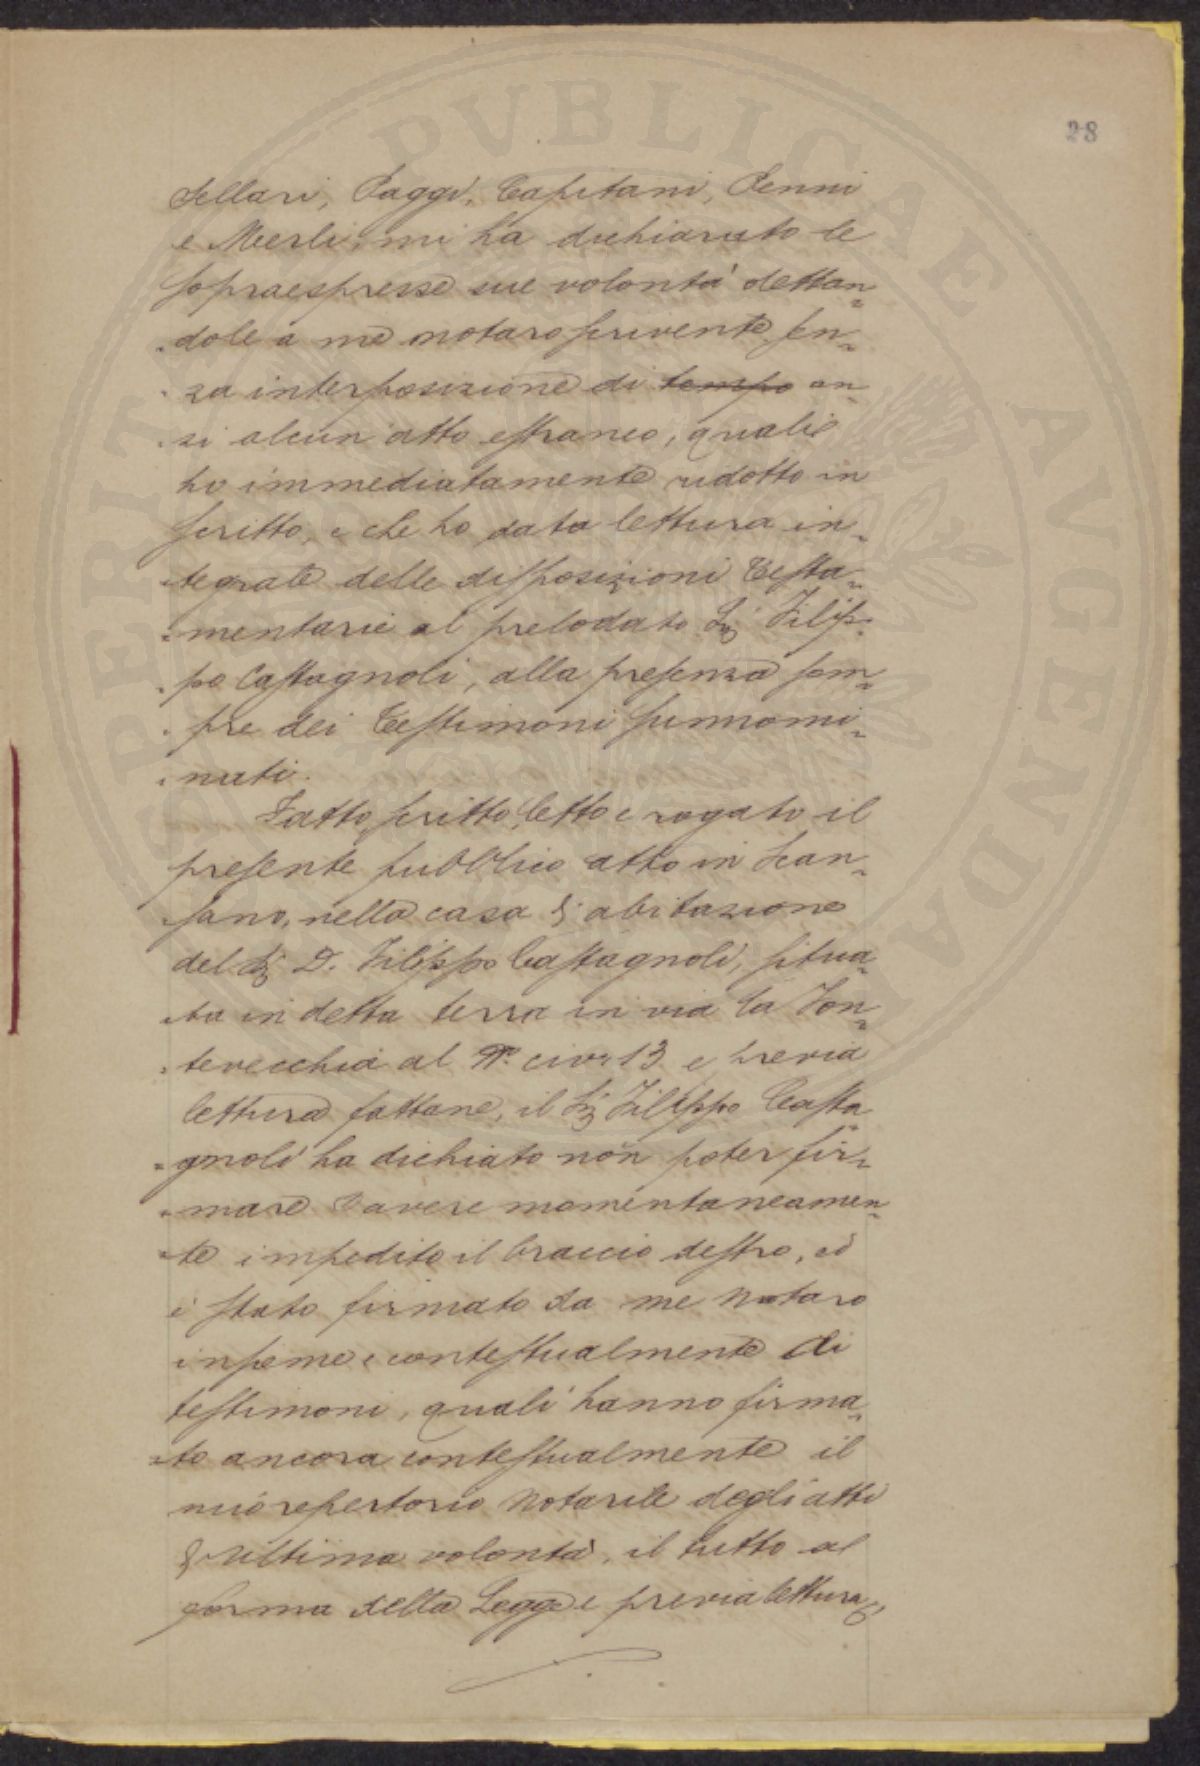 28
Sellari, Paggi, Capitani, Penni
e Merli, mi ha dichiarato le
sopraespresse sue volontà dettan=
=dole a me notaro scrivente sen=
=za interposizione di tempo an
=zi alcun atto estraneo, quali
ho immediatamente ridotto in
scritto, e che ho data lettura in=
=tegrale delle disposizioni Testa=
=mentarie al prelodato Sig Filip=
=po Castagnoli, alla presenza sem=
=pre dei Testimoni sunnomi=
=nati.
Fatto, scritto, letto e rogato il
presente pubblico atto in Scan=
sano, nella casa di abitazione
del Sig D. Filippo Castagnoli, situa=
=ta in detta terra in via la Fon=
=tevecchia al N° civ° 13 e previa
lettura fattane, il Sig Filippo Casta
=gnoli ha dichiato non poter fir=
=mare avere momentaneamen=
=te impedito il braccio destro, ed
è stato firmato da me Notaro
insieme e contestualmente ai
testimoni, quali hanno firma=
=to ancora contestualmente il
mio repertorio Notarile degli atti
di ultima volontà, il tutto al
forma della Legge e previa lettura
SPERITAE PVBLICAE AVGENDAE